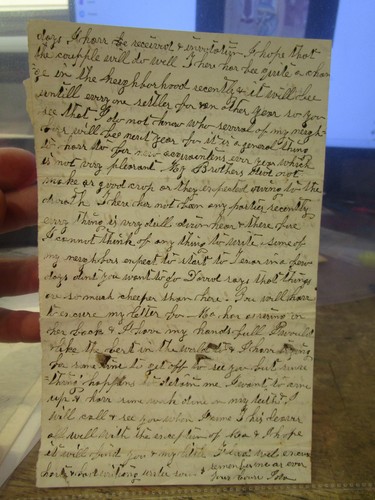 days I have received & invitation. I hope that
the coupple will do well There has bee quite a chan
ge in the neighborhood recently & it will bee
untill every one settles for an other year so you
see that I do not know who several of my neigh
bors will bee next year for it is a general thing
to have to for new acquaintens ever year which
is not very pleasant My Brothers did not
make as good crop as they expected owing to the
drouth There has not been any parties recently
every thing is very dull down hear & there fore
I cannot think of any thing to write. Some of
my neighbors expect to start to Texas in a few
days dont you want to go Darrol says that things
are so much cheeper than here. You will have
to excuse my letter for Ma has a
her back & I have my hands full
like the best in the world to & I have
for some time to get off to see you but some
thing happens to detain me I want to come
up & have some work done on my teeth. I
will call & see you when I come This leaves
all well with the exception of Ma & I hope
it will find you & my
& remember me as ever
your Cousin